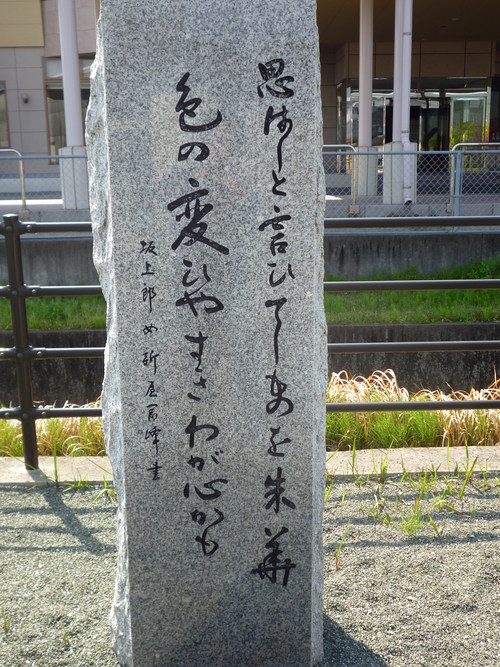 思はじと言ひてしものを朱華
色の変ひやすきわが心かも
坂上郎女 新屋 峰書